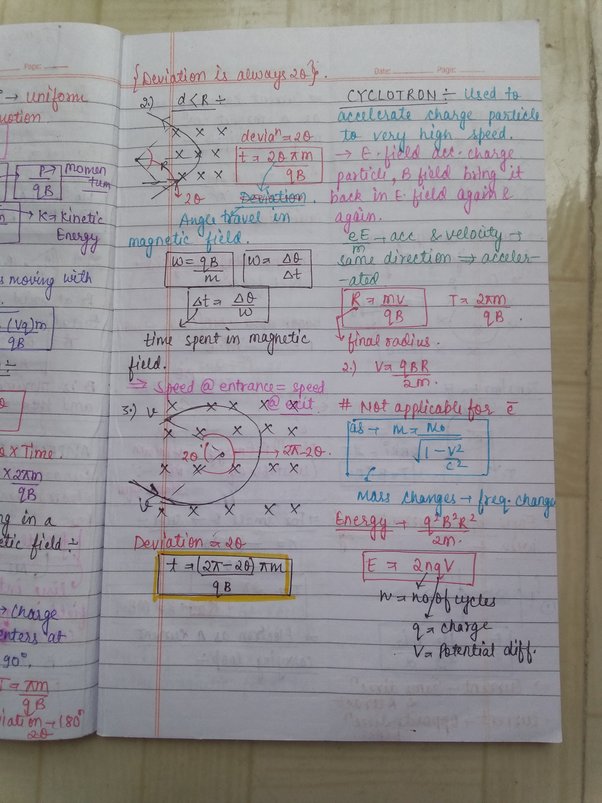 Page:
→ uniform
motion
P → Momen
tum
qB
→ K = Kinetic
Energy
s moving with
= (Vq)m
qB
× Time.
× 2πm
qB
ng in a
etic field ÷
→ Charge
enters at
90°.
T = πm
qB
viation → 180°
2θ
{Deviation is always 2θ}.
2.) d < R ÷
× × ×
× × ×
× × ×
× × ×
deviaⁿ = 2θ
t = 2θ πm
qB
2θ
Deviation.
Angle travel in
magnetic field.
w = qB
m
w = Δθ
Δt
Δt = Δθ
w
time spent in magnetic
field.
⇒ speed @ entrance = speed
@ exit
3.) v × × × × ×
× × × × ×
× × × × ×
2θ → 2π-2θ
× × × × ×
v × × × × ×
Deviation = 2θ
t = (2π - 2θ) πm
qB
Date: Page:
CYCLOTRON ÷ Used to
accelerate charge particle
to very high speed.
→ E-field acc. charge
particle, B field bring it
back in E field again &
again.
eE → acc & velocity →
m
same direction ⇒ acceler-
-ated
R = mv
qB
T = 2πm
qB
final radius.
2.) V = qBR
2m.
# Not applicable for e̅
as → m = m₀
√1 - v²
c²
Mass changes → freq. change
Energy → q²B²R²
2m.
E = 2nqV
n = no. of cycles
q = charge
V = Potential diff.